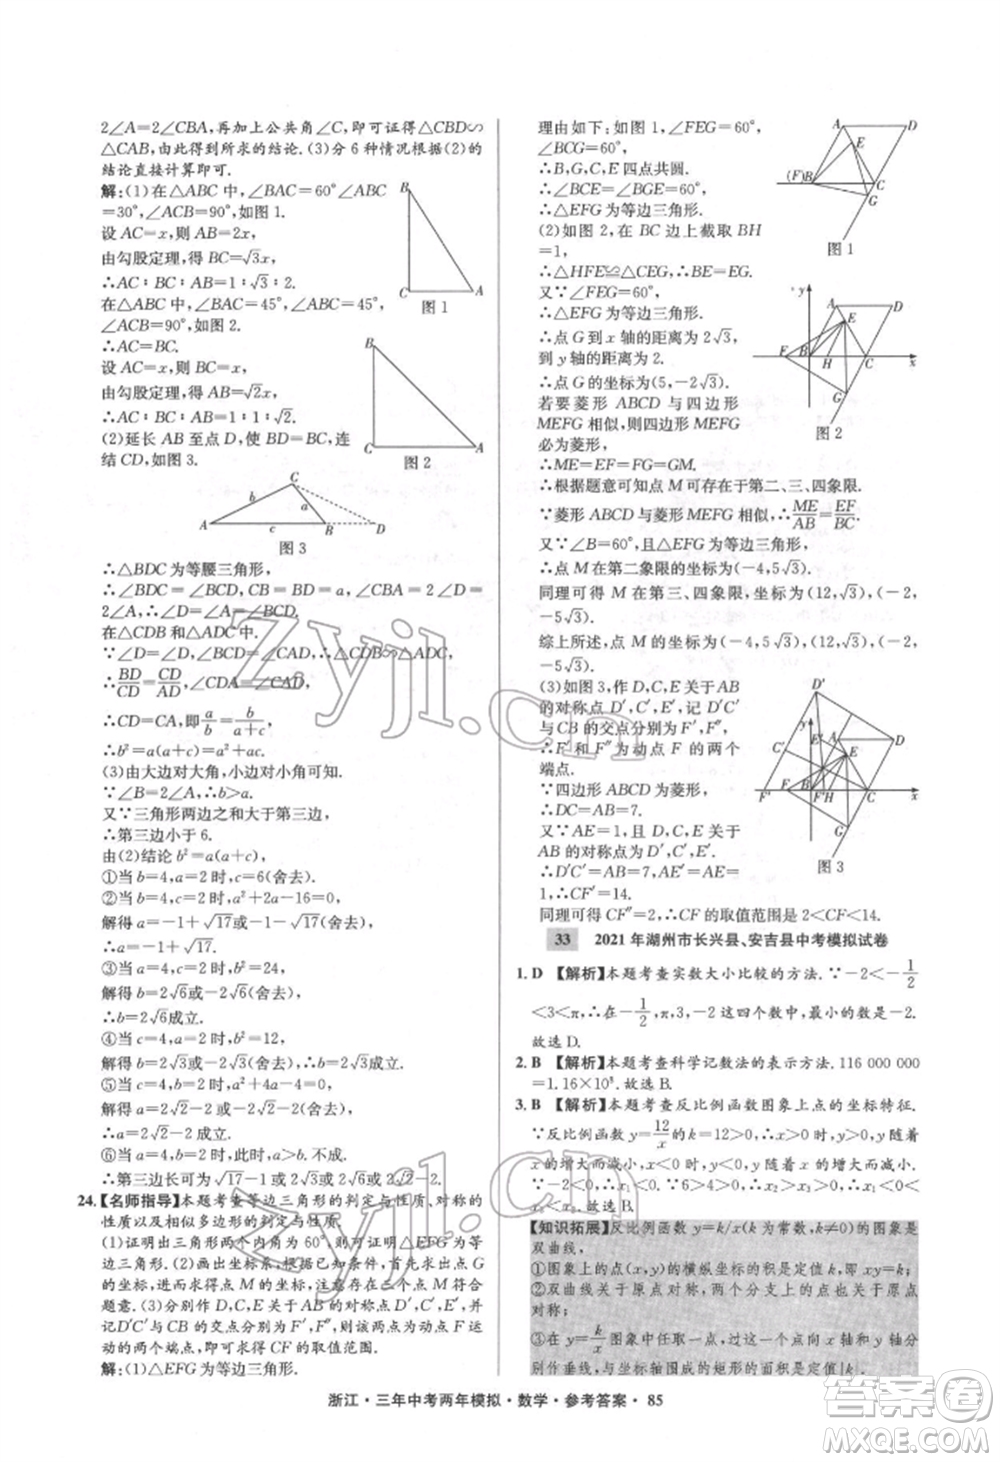 2∠A=2∠CBA,再加上公共角∠C,即可证得△CBD∽
△CAB,由此得到所求的结论.(3)分 6 种情况根据(2)的
结论直接计算即可.
解:(1)在△ABC 中,∠BAC=60°∠ABC
=30°,∠ACB=90°,如图 1.
设 AC=x,则 AB=2x,
由勾股定理,得 BC=√3x,
∴AC∶BC∶AB=1∶√3∶2.
在△ABC 中,∠BAC=45°,∠ABC=45°,
∠ACB=90°,如图 2.
∴AC=BC.
设 AC=x,则 BC=x,
由勾股定理,得 AB=√2x,
∴AC∶BC∶AB=1∶1∶√2.
(2)延长 AB 至点 D,使 BD=BC,连
结 CD,如图 3.
B
C
A
图 1
B
C
A
图 2
C
b
a
A
c
B
D
图 3
∴△BDC 为等腰三角形,
∴∠BDC=∠BCD, CB=BD=a,∠CBA=2∠D=
2∠A,∴∠A=∠D=∠BCD.
在△CDB 和△ADC 中.
∵∠D=∠D,∠BCD=∠CAD,∴△CDB∽△ADC,
∴BD/CD=CD/AD,∠BCD=∠CAD=∠D.
∴CD=CA,即a/b=b/(a+c),
∴b²=a(a+c)=a²+ac.
(3)由大边对大角,小边对小角可知.
∵∠B=2∠A,∴b>a.
又∵三角形两边之和大于第三边,
∴第三边小于 6.
由(2)结论 b²=a(a+c),
①当 b=4,a=2 时,c=6(舍去).
②当 b=4,c=2 时,a²+2a-16=0,
解得 a=-1+√17或-1-√17(舍去).
∴a=-1+√17成立.
③当 a=4,c=2 时,b²=24,
解得 b=2√6或-2√6(舍去),
∴b=2√6成立.
④当 a=2,c=4 时,b²=12,
解得 b=2√3或-2√3(舍去),∴b=2√3成立.
⑤当 b=2,c=4 时,a²+4a-4=0,
解得 a=2√2-2或-2√2-2(舍去),
∴a=2√2-2 成立.
⑥当 a=4,b=2 时,此时,a>b. 不成立.
∴第三边长可为√17-1或 2√6或 2√3或 2√2-2.
24.【名师指导】本题考查等边三角形的判定与性质、对称的
性质以及相似多边形的判定与性质.
(1)证明出三角形两个内角为 60°,则可证明△EFG为等
边三角形.(2)画出坐标系,根据已知条件,求出点 G 的坐
标,再根据两个四边形相似求出点 M 的坐标,选择符合
题意.(3)分别作 D,E 的对称点 D′,E′,D′C′与 CB,
D′E′与 CB 的交点分别为 F′,F″,则为动点 F 的两个终
点,即可求出 CF 的取值范围.
解:(1)△EFG 为等边三角形.
理由如下:如图 1,∠FEG=60°,
∠BCG=60°,
∴B,G,C,E 四点共圆.
∴∠BCE=∠BGE=60°.
∴△EFG为等边三角形.
(2)如图 2,在 BC 边上截取 BH
=1,
∴△HFE≌△CEG,BE=EG.
又∵∠FEG=60°,
∴△EFG 为等边三角形.
∴点 G 到 x 轴的距离为 2√3,到
到 y轴的距离为 5.
∴点 G 的坐标为(5,-2√3).
若要菱形 ABCD 与四边形
MEFG 相似,则四边形 MEFG
必为菱形,
∴ME=EF=FG=GM.
A
D
E
(F)B
C
G
图 1
y
A
D
E
F
B
H
C
x
G
图 2
∴根据题意可知点 M 可存在于第二、三、四象限.
∵菱形 ABCD 与菱形 MEFG 相似,∴ME/AB=EF/BC.
又∵∠B=60°,且△EFG 为等边三角形,
∴点 M 在第二象限时,坐标为(-4,5√3).
同理可得 M 在第三、四象限时,坐标为(12,√3),(-2,
-5√3).
综上所述,点 M 的坐标为(-4,5√3),(12,√3),(-2,
-5√3).
(3)如图 3,作 D,E 关于 AB
的对称点 D′,E′,记 D′C′,D′E′
与 CB 的交点分别为 F′,F″.
∴F′和 F″为动点 F 的两个
端点.
∵四边形 ABCD 为菱形,
∴DC=AB=7.
又∵AE=1,D,E 关于
AB 的对称点为 D′,E′,
∴D′C′=AB=7,D′E′=
1,∴CF′=14.
D′
y
E′
A
D
C′
E
F′
F
B
F″H
C
x
G
图 3
同理可得 CF″=2,∴CF 的取值范围为 2<CF<14.
33 2021 年湖州市长兴县、安吉县中考模拟试卷
1. D 【解析】本题考查实数大小比较的方法.∵-2<-1/2
<3<π,∴在-1/2,π,3,-2 这四个数中,最小的数是-2.
故选 D.
2. B 【解析】本题考查科学记数法的表示方法.116 000 000
=1.16×10⁸.故选 B.
3. B 【解析】本题考查反比例函数图象上点的坐标特征.
∵反比例函数 y=12/x中,k=12>0,∴在每个象限内,y 随着
x 的增大而减小,∵
-2<0,∴x₁<0. ∵6>2>0,∴x₂>x₃>0,∴x₁<x₃<x₂.
故选 B.
【知识拓展】反比例函数 y=k/x(k 为常数,k≠0)的图象是
双曲线,
①图象上的点(x,y)的横纵坐标的积是定值 k,即 xy=k;
②双曲线关于原点对称,两个分支上的点也关于原点
对称;
③在 y=k/x图象中任取一点,过这一个点向 x 轴和 y 轴分
别作垂线,与坐标轴围成的矩形的面积是定值|k|.
浙江·三年中考两年模拟·数学·参考答案·85